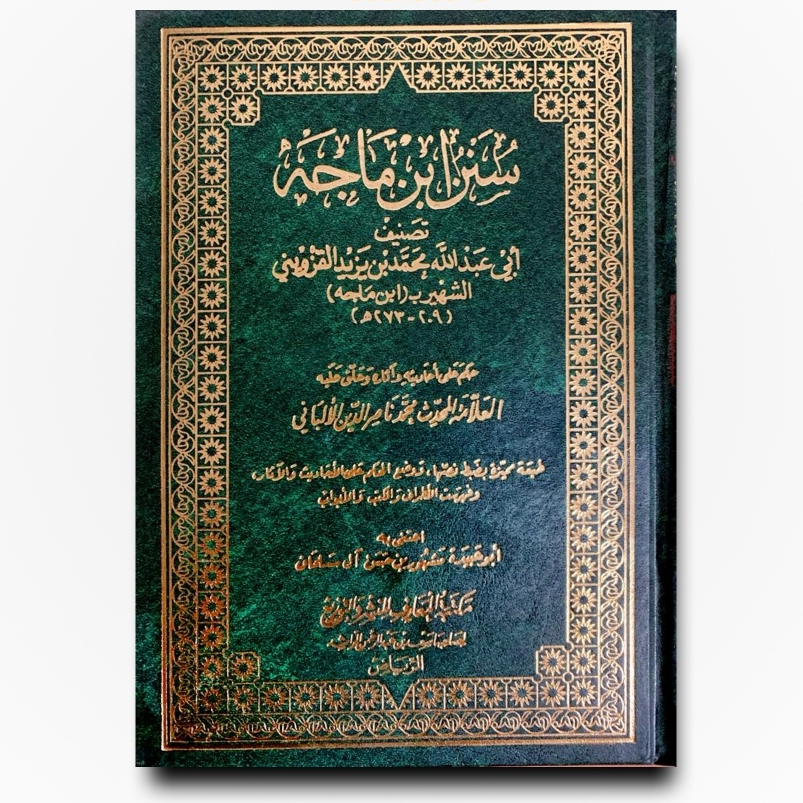 سُنَنُ ابْن مَاجَه
تَصنيفُ
أَبي عَبْد اللَّه مُحَمَّد بْن يَزيْد القَزْوِيْني
الشهير بـ (ابن مَاجَه)
(٢٠٩ - ٢٧٣هـ)
حَكمَ عَلى أَحَاديثِهِ وَآثَارِه وَعَلَّق عَلَيه
العَلّامَة المُحَدّث مُحَمَّد نَاصِر الدِّين الأَلبَاني
طبعَة مميّزة بضَبط نصّها، وَوضع الحكم عَلى الأَحَاديث وَالآثَار،
وَفهرَست الأَطراف وَالكتب وَالأَبواب
اعتَنى به
أَبو عُبيدة مَشهُور بن حَسَن آل سَلمَان
مَكتَبة المَعَارف للنَشرِ وَالتَوزيع
لصَاحبهَا سَعد بن عَبد الرحمن الرَاشِد
الريَاض